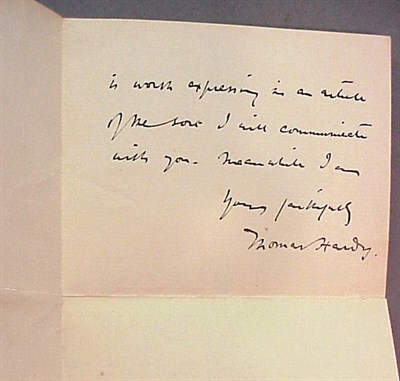 is worth expressing in an article
of the sort I will communicate
with you. Meanwhile I am
Yours faithfully
Thomas Hardy.